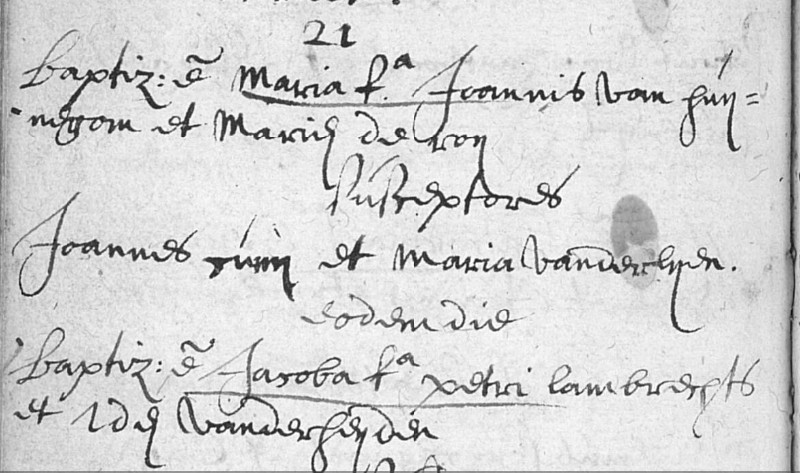 21
Baptiz: ē Maria f.a Joannis van Huij=
negom et Mariæ de roy
susceptores
Joannes et Maria vander
eodem die
Baptiz: ē Jacoba f.a petri lambrechts
et Idæ vanderheyden